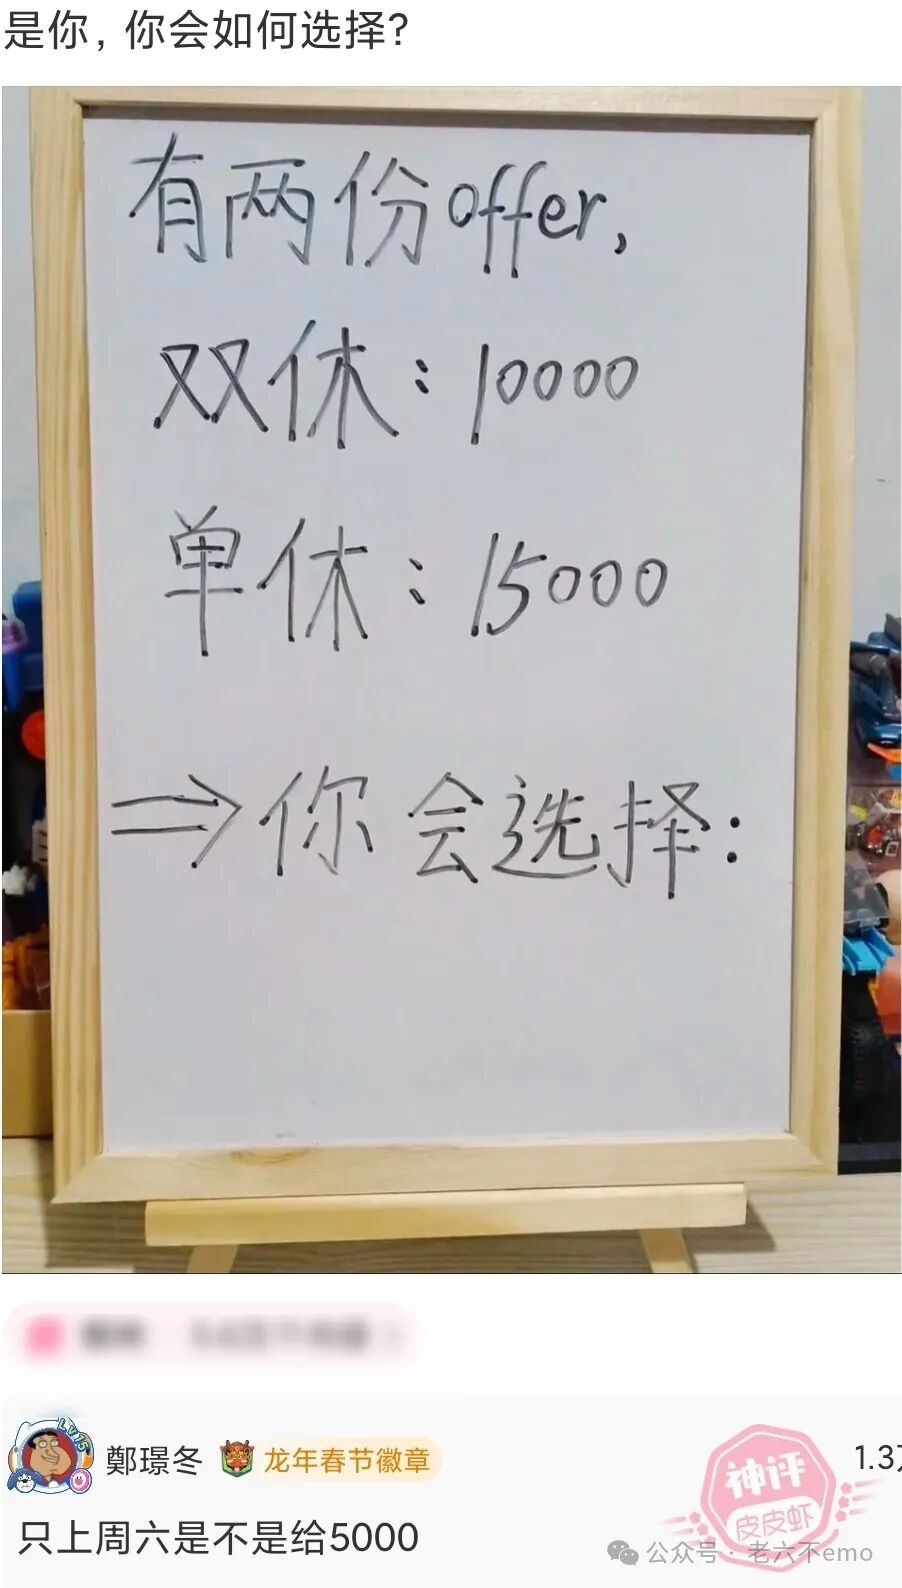 是你，你会如何选择？
有两份offer,
双休：10000
单休：15000
⇒你会选择：
LV15
鄭璟冬
龙年春节徽章
神评
皮皮虾
1.3
只上周六是不是给5000
公众号·老六不emo